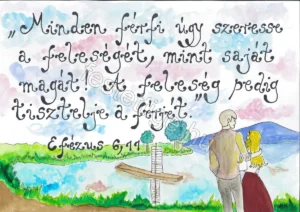 „Minden férfi úgy szeresse
a feleségét, mint saját
magát! A feleség pedig
tisztelje a férjét."
Efézus 6,11